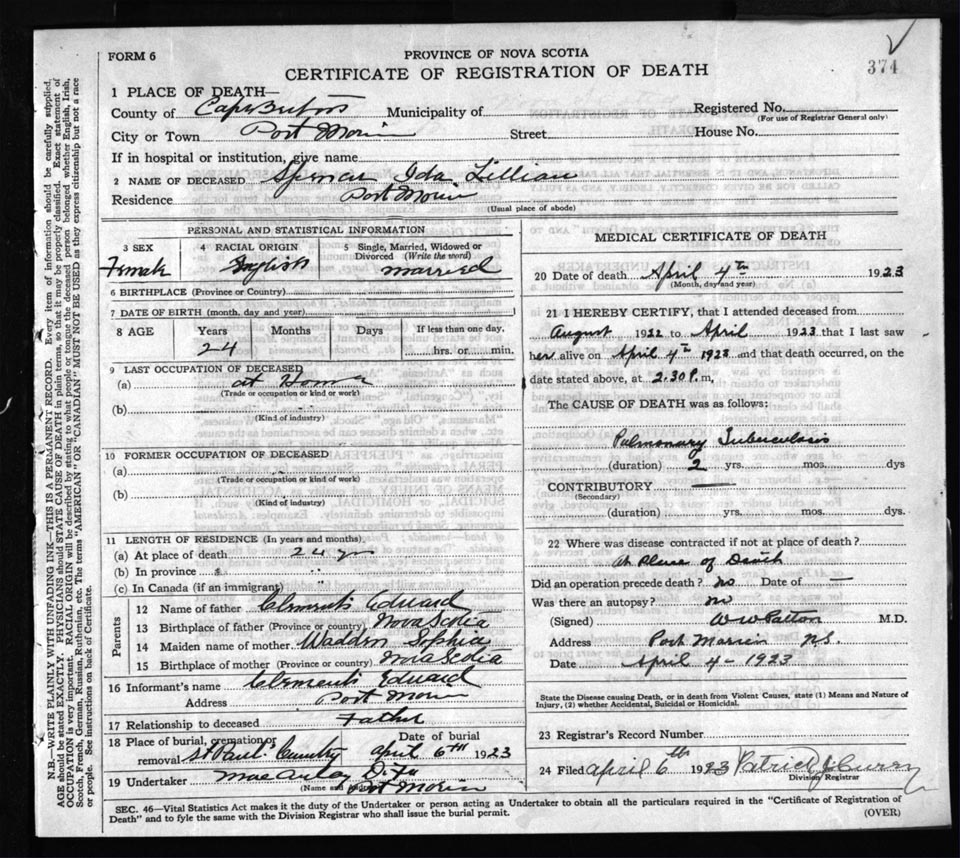 FORM 6
PROVINCE OF NOVA SCOTIA
CERTIFICATE OF REGISTRATION OF DEATH
374
1 PLACE OF DEATH—
County of Cape Breton Municipality of Registered No.
(For use of Registrar General only)
City or Town Port Morien Street House No.
If in hospital or institution, give name
2 NAME OF DECEASED Spencer Ida Lillian
Residence Port Morien
(Usual place of abode)
PERSONAL AND STATISTICAL INFORMATION
3 SEX 4 RACIAL ORIGIN 5 Single, Married, Widowed or Divorced (Write the word)
Female English married
6 BIRTHPLACE (Province or Country)
7 DATE OF BIRTH (month, day and year)
8 AGE Years Months Days If less than one day,
24 hrs. or min.
9 LAST OCCUPATION OF DECEASED
(a) at Home
(Trade or occupation or kind or work)
(b)
(Kind of industry)
10 FORMER OCCUPATION OF DECEASED
(a)
(Trade or occupation or kind or work)
(b)
(Kind of industry)
11 LENGTH OF RESIDENCE (In years and months)
(a) At place of death 24 yrs
(b) In province "
(c) In Canada (if an immigrant) "
Parents
12 Name of father Clements Eduard
13 Birthplace of father (Province or country) Nova Scotia
14 Maiden name of mother Sophia
15 Birthplace of mother (Province or country) Nova Scotia
16 Informant's name Clements Eduard
Address Port Morien
17 Relationship to deceased Father
18 Place of burial, cremation or removal St Paul's Date of burial April 6TH 1923
19 Undertaker
(Name and address) Port Morien
MEDICAL CERTIFICATE OF DEATH
20 Date of death April 4th 1923
(Month, day and year)
21 I HEREBY CERTIFY, that I attended deceased from
August 1922 to April 1923 that I last saw
her alive on April 4th 1923 and that death occurred, on the
date stated above, at 2.30 P.m,
The CAUSE OF DEATH was as follows:
Pulmonary Tuberculosis
(duration) 2 yrs. mos. dys
CONTRIBUTORY —
(Secondary)
(duration) yrs. mos. dys.
22 Where was disease contracted if not at place of death?
At Place of Death
Did an operation precede death? no Date of —
Was there an autopsy? no
(Signed) W W Patton M.D.
Address Port Morien N.S.
Date April 4 - 1923
State the Disease causing Death, or in death from Violent Causes, state (1) Means and Nature of
Injury, (2) whether Accidental, Suicidal or Homicidal.
23 Registrar's Record Number
24 Filed April 6th 1923 Patrick J Curry
Division Registrar
SEC. 46—Vital Statistics Act makes it the duty of the Undertaker or person acting as Undertaker to obtain all the particulars required in the "Certificate of Registration of
Death" and to fyle the same with the Division Registrar who shall issue the burial permit.
(OVER)
N.B.—WRITE PLAINLY WITH UNFADING INK—THIS IS A PERMANENT RECORD. Every item of information should be carefully supplied.
AGE should be stated EXACTLY. PHYSICIANS should STATE CAUSE OF DEATH in plain terms, so that it may be properly classified. Exact statement of
OCCUPATION is very important. RACIAL ORIGIN will be described by stating to what people or tongue the deceased person belonged whether English, Irish,
Scotch, French, German, Russian, Ruthenian, etc. The terms "AMERICAN" OR "CANADIAN" MUST NOT BE USED as they express citizenship but not a race
or people. See instructions on back of Certificate.